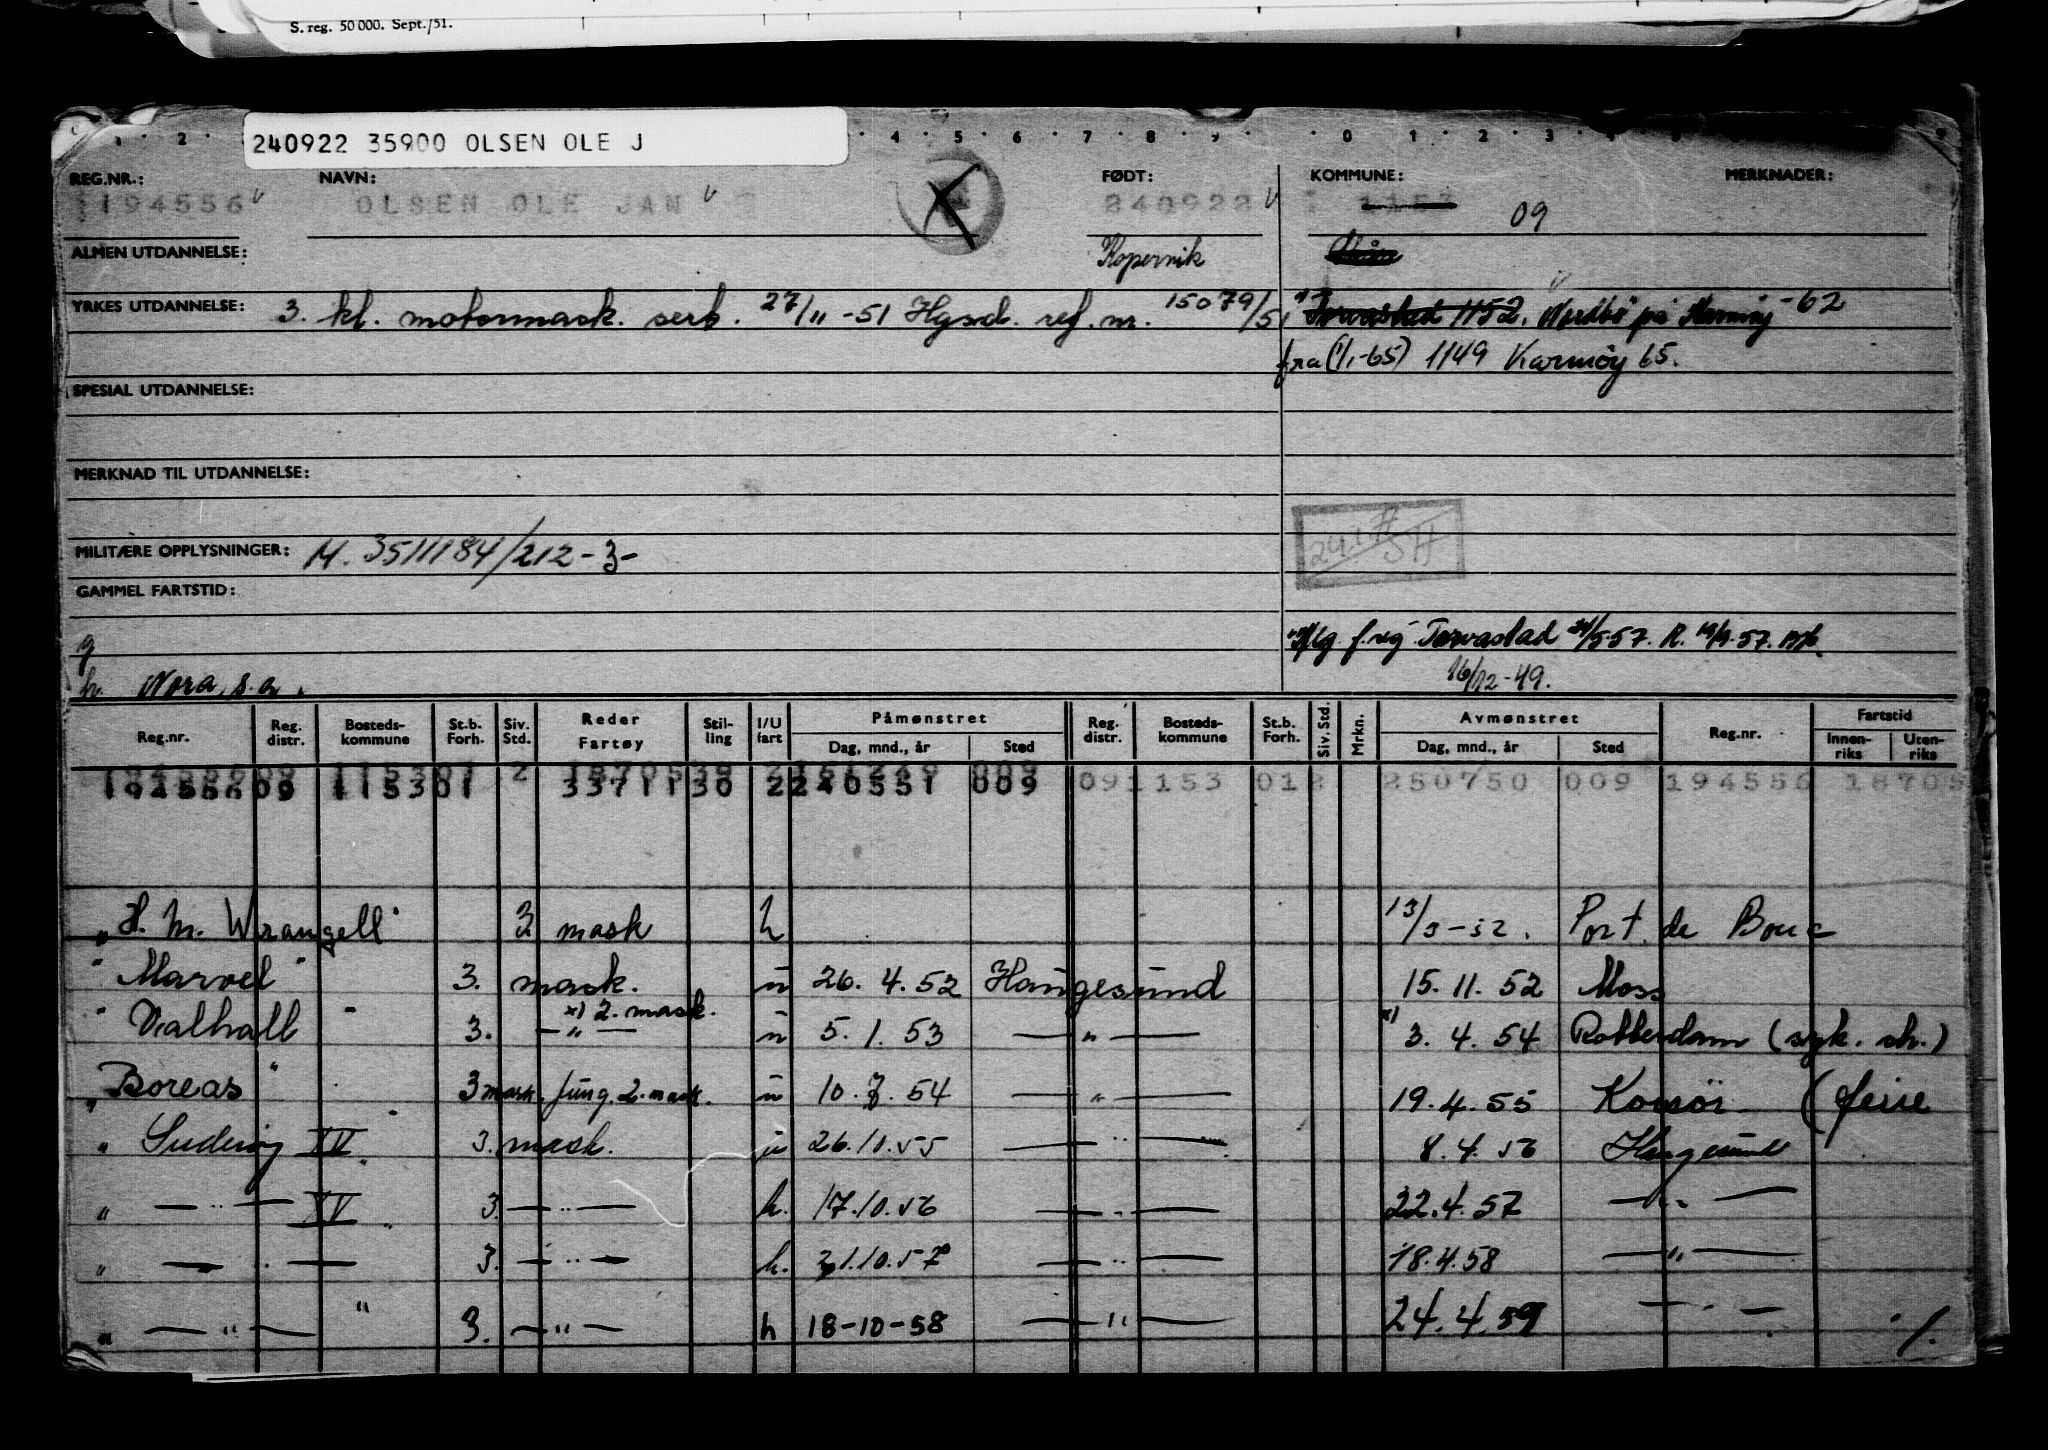 S. reg. 50 000. Sept./51.
240922 35900 OLSEN OLE J
REG.NR.: NAVN: FØDT: KOMMUNE: MERKNADER:
194556 OLSEN OLE JAN 240922 09
ALMEN UTDANNELSE: Kopervik
YRKES UTDANNELSE: 3. kl. motormask. sert. 27/11-51 Hgsd. ref. nr. 15079/51 Torvastad 1152. Nordbö på Karmöy -62
fra (1/1-65) 1149 Karmöy 65.
SPESIAL UTDANNELSE:
MERKNAD TIL UTDANNELSE:
MILITÆRE OPPLYSNINGER: M. 3511184/212-3-
GAMMEL FARTSTID:
flg. f. reg. Torvastad 21/5-57. R. 19/9-57.
g
16/12-49.
h. Nora, s.a.
Reg.nr. Reg. distr. Bosteds-kommune St.b. Forh. Siv. Std. Reder Fartøy Stil-ling I/U fart Påmønstret Dag, mnd., år Sted Reg. distr. Bosteds-kommune St.b. Forh. Siv. Std. Mrkn. Avmønstret Dag, mnd., år Sted Reg.nr. Fartstid Innen-riks Uten-riks
194556 09 1153 01 33711 30 2 240551 009 09 1153 01 2 250750 009 194556 18705
"H. M. Wrangell" 3 mask h 13/3-52. Port de Bouc
"Marvel" 3. mask. u 26.4.52 Haugesund 15.11.52 Moss
x) 2. mask.
"Valhall" 3. — " — u 5.1.53 — " — x) 3.4.54 Rotterdam (syk. sh.)
"Boreas" 3 mask. fung. 2. mask. u 10.7.54 — " — 19.4.55 Korsör (ferie
"Suderöy XV" 3. mask. u 26.10.55 — " — 8.4.56 Haugesund
" — " — XV " 3. — " — h. 17.10.56 — " — 22.4.57 — " —
" — " — 3. — " — h. 21.10.57 — " — 18.4.58 — " —
" — " — " 3. — " — h 18-10-58 — " — 24.4.59 — " — ./.